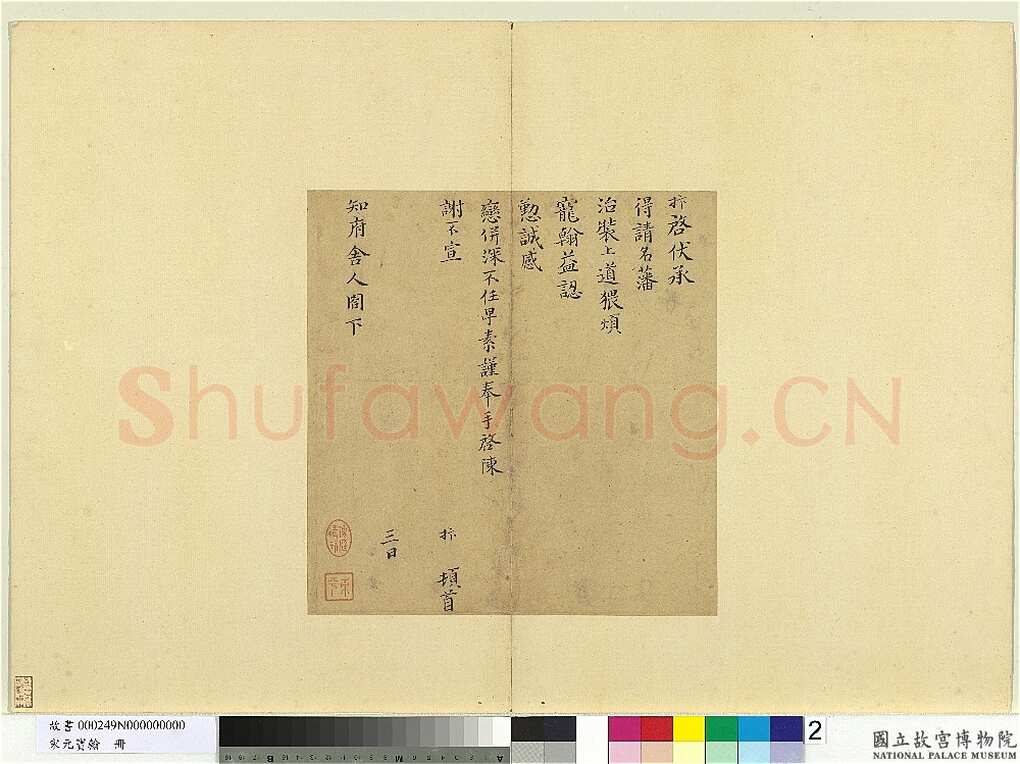 抃啓伏承
得請名藩
治裝上道猥煩
寵翰益認
懃誠感
戀併深不任早素謹奉手啓陳
謝不宣
抃 頓首
三日
知府舍人閤下
Shufawang.CN
故書 000249N000000000
宋元寶翰 冊
2
國立故宮博物院
NATIONAL PALACE MUSEUM